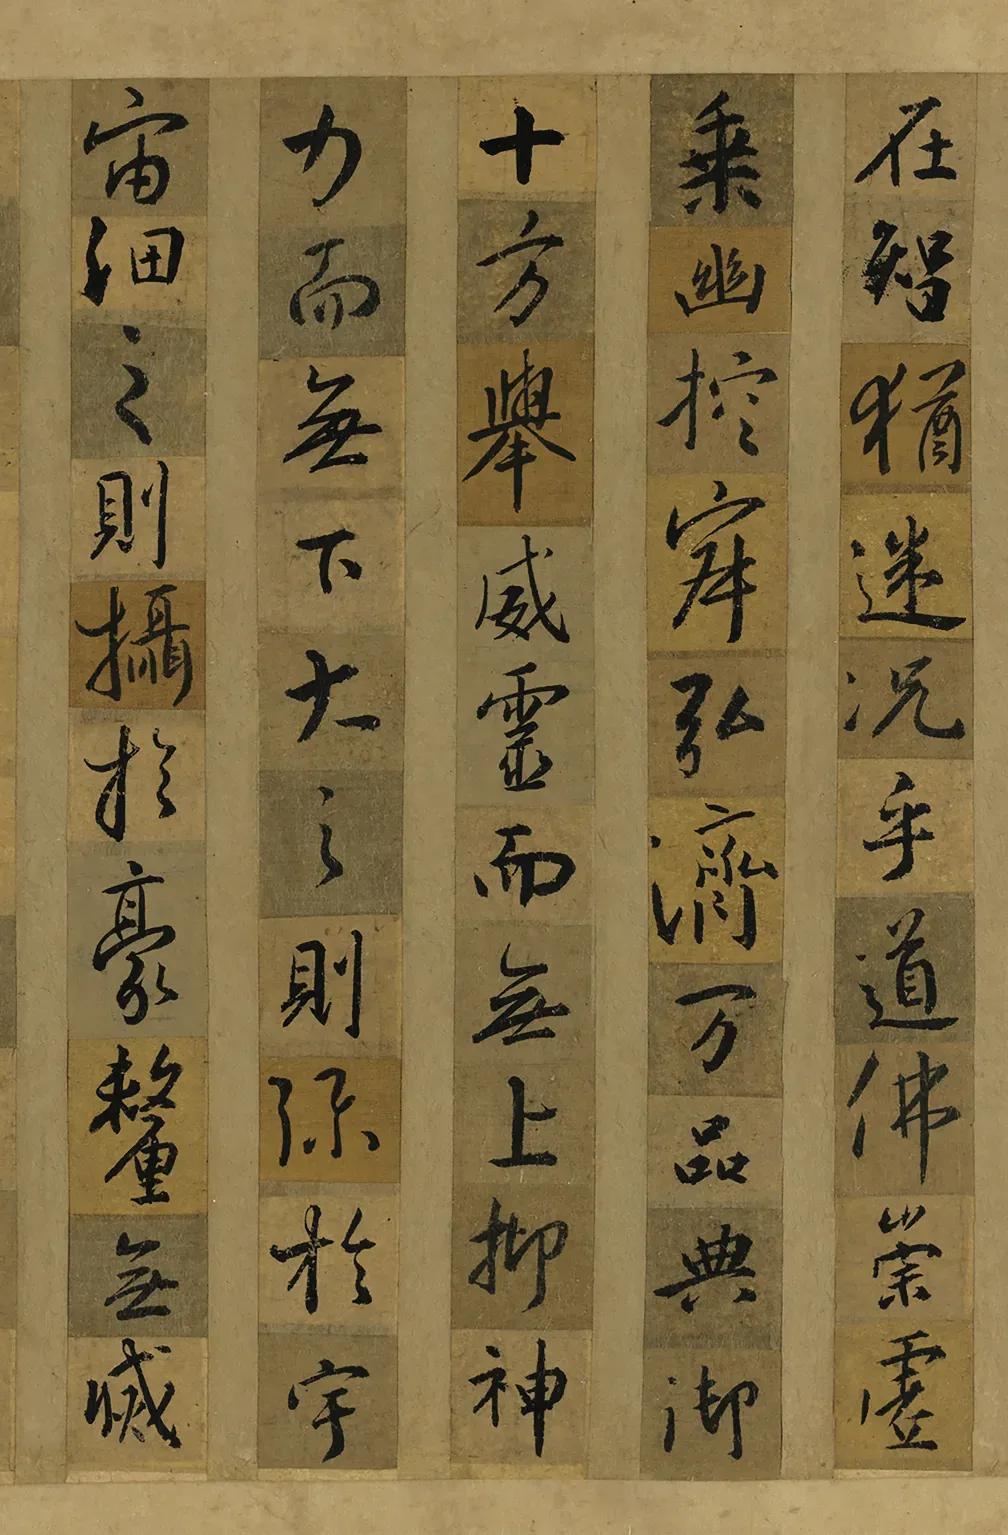 在智猶迷况乎道佛崇虛
乘幽控寂弘濟万品典御
十方舉威靈而無上抑神
力而無下大之則弥於宇
宙細之則攝於豪釐無滅